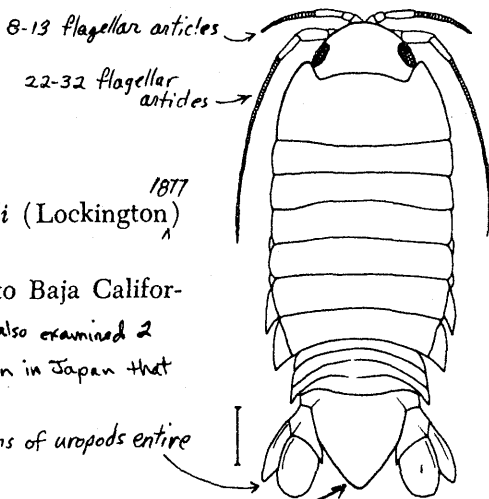 8-13 flagellar articles
22-32 flagellar
articles
1877
i (Lockington)
^
to Baja Califor-
also examined 2
n in Japan that
ns of uropods entire